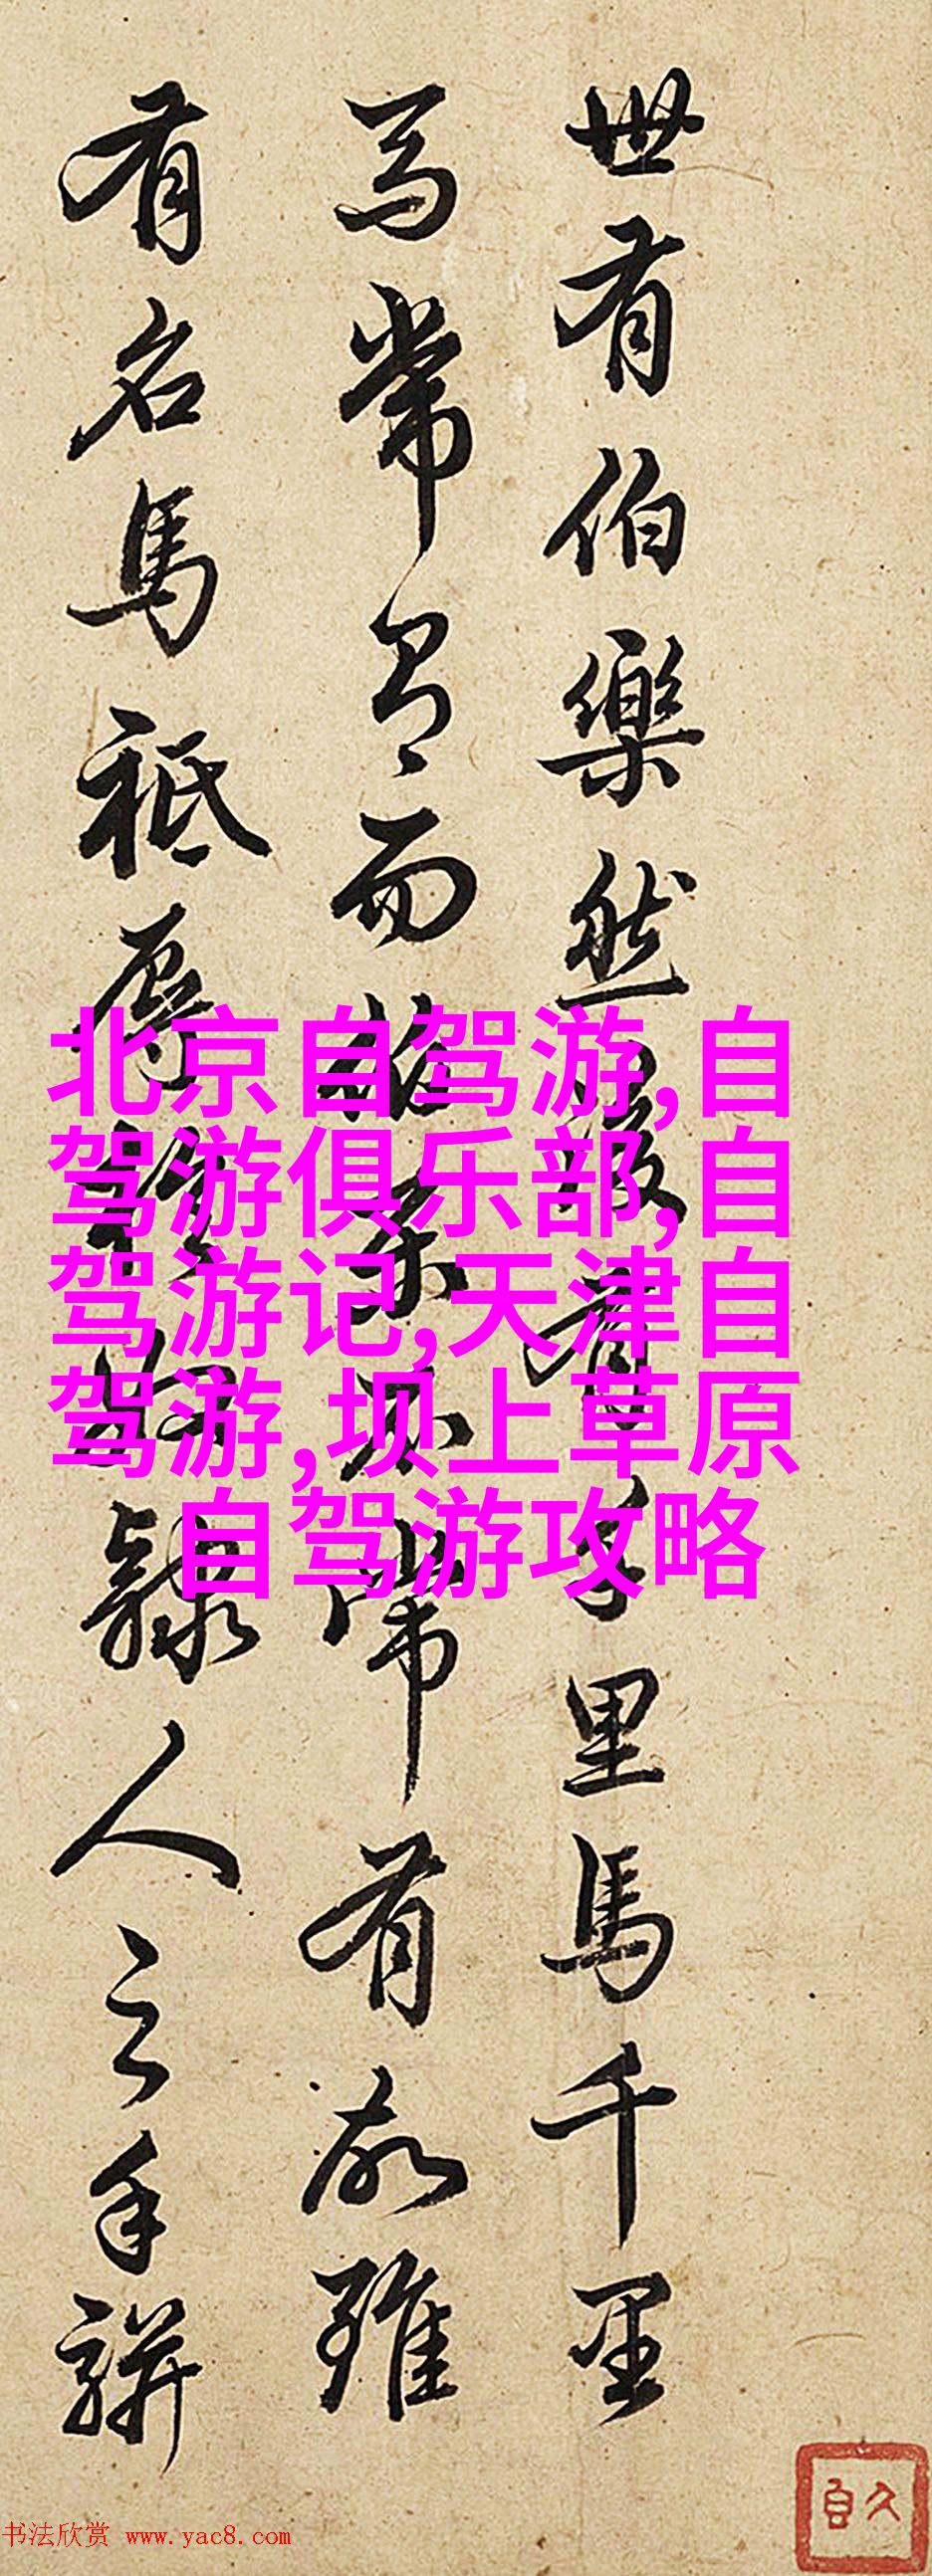 世有伯樂然後有千里馬千里
馬常有而伯樂不常有故雖
有名馬祗辱於奴隸人之手駢
北京自驾游,自
驾游俱乐部,自
驾游记,天津自
驾游,坝上草原
自驾游攻略
书法欣赏 www.yac8.com